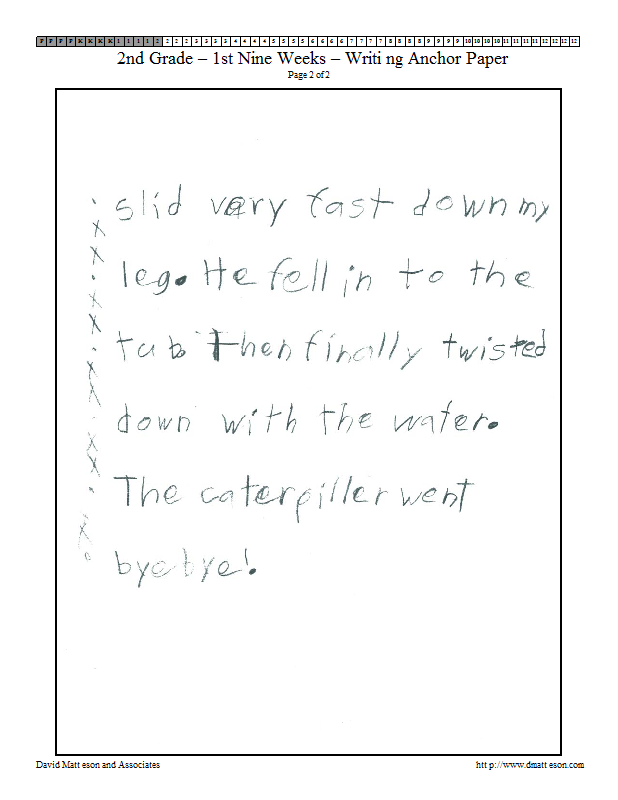 P P P P K K K K 1 1 1 1 2 2 2 2 3 3 3 3 4 4 4 4 5 5 5 5 6 6 6 6 7 7 7 7 8 8 8 8 9 9 9 9 10 10 10 10 11 11 11 11 12 12 12 12
2nd Grade – 1st Nine Weeks – Writi ng Anchor Paper
Page 2 of 2
slid very fast down my
leg. He fell in to the
tub Then finally twisted
down with the water.
The caterpiller went
bye bye!
David Matt eson and Associates
htt p://www.dmatt eson.com